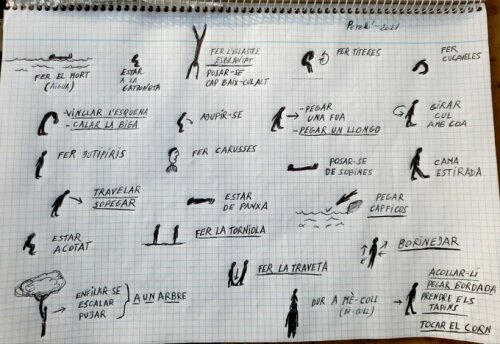 Perelló-2021
FER EL MORT
(AIGUA)
ESTAR
A LA
GATONETA
FER L'ULLASTRE
ESBRANCAT
POSAR-SE
CAP BAIX-CUL ALT
FER TITERES
FER
CUCAVELES
-VINCLAR L'ESQUENA
-CALAR LA BIGA
AJUPIR-SE
-PEGAR
UNA FUA
-PEGAR UN LLONGO
GIRAR
CUL
AMB COA
FER BUTIPIRIS
FER CARUSSES
POSAR-SE
DE SOBINES
CAMA
ESTIRADA
TRAVELAR
SOPEGAR
ESTAR
DE PANXA
PEGAR
CAPFICOS
ESTAR
ACOTAT
FER LA TORNIOLA
BORINEJAR
ENFILAR-SE
ESCALAR
PUJAR
A UN ARBRE
FER LA TRAVETA
DUR A MÈ-COLL
ACOLLAR-LI
PEGAR BORDADA
PRENDRE ELS
TAPINS
TOCAR EL CORN